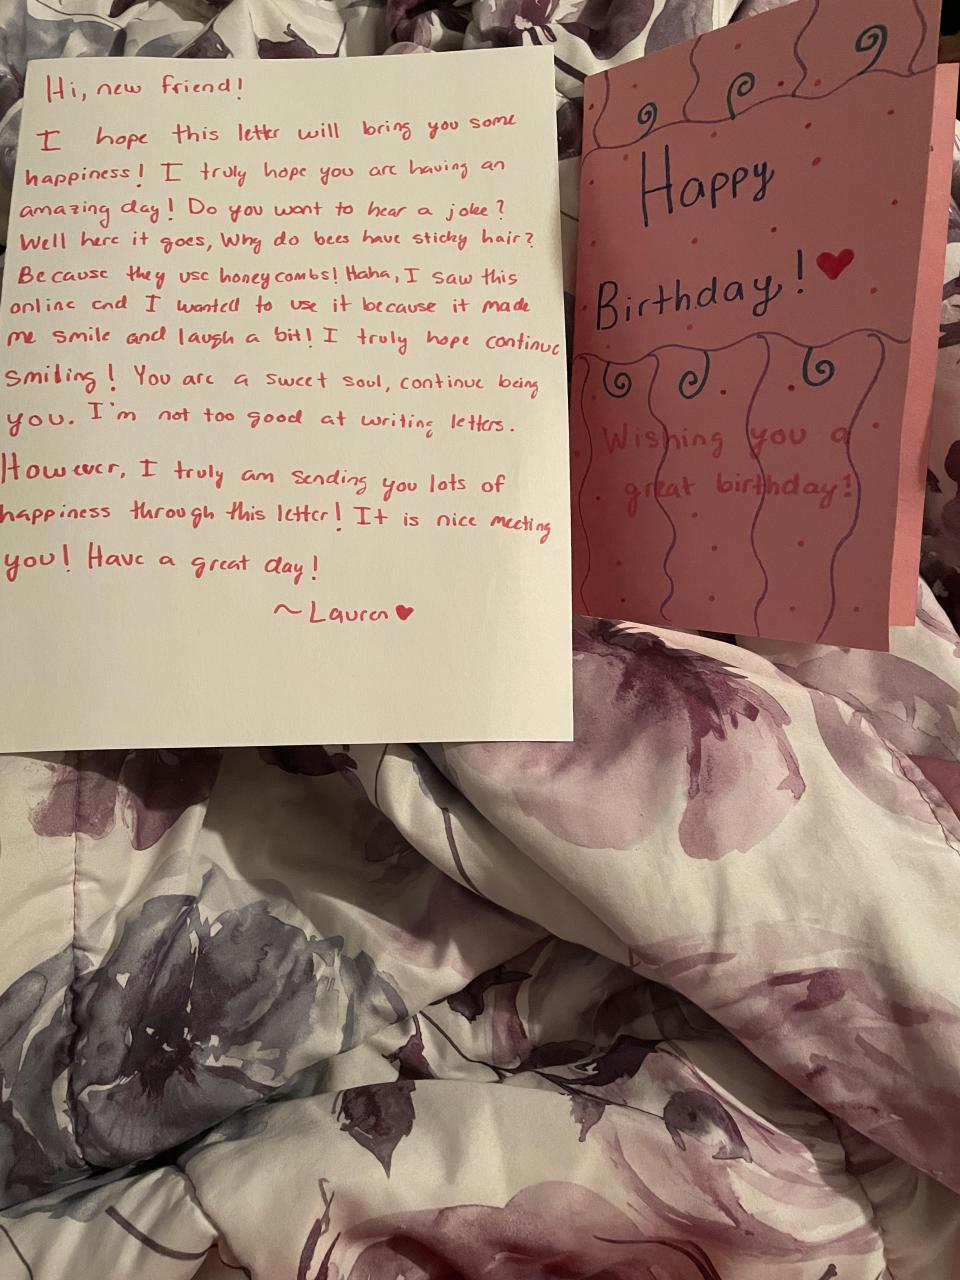 Hi, new friend!
I hope this letter will bring you some
happiness! I truly hope you are having an
amazing day! Do you want to hear a joke?
Well here it goes, Why do bees have sticky hair?
Because they use honeycombs! Haha, I saw this
online and I wanted to use it because it made
me smile and laugh a bit! I truly hope continue
smiling! You are a sweet soul, continue being
you. I'm not too good at writing letters.
However, I truly am sending you lots of
happiness through this letter! It is nice meeting
you! Have a great day!
~Lauren♥
Happy
Birthday!♥
Wishing you a
great birthday!